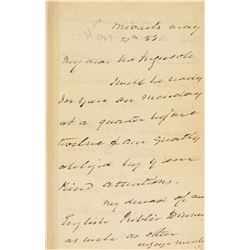 my dear Mr Ingersoll
I will be ready
for you on monday
at a quarter before
twelve & am greatly
oblig'd by your
kind attentions.
My dread of an
English Public Dinner
as well as other